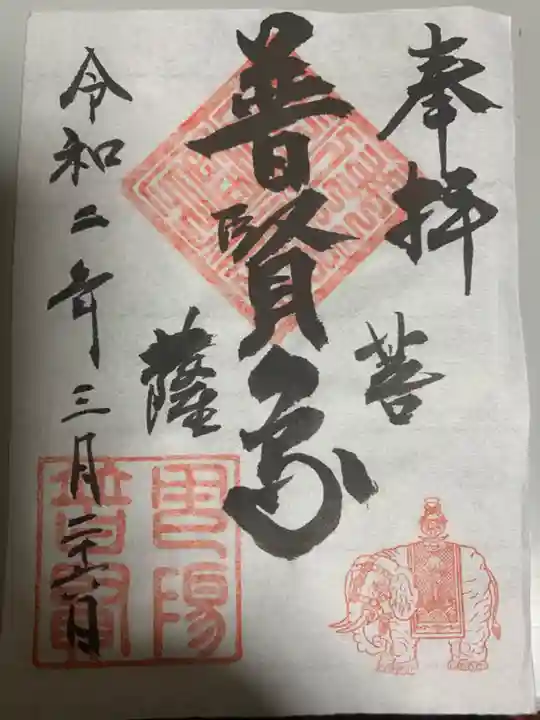 奉拝
菩
普賢象
薩
令和二年三月二十六日
周陽
普賢